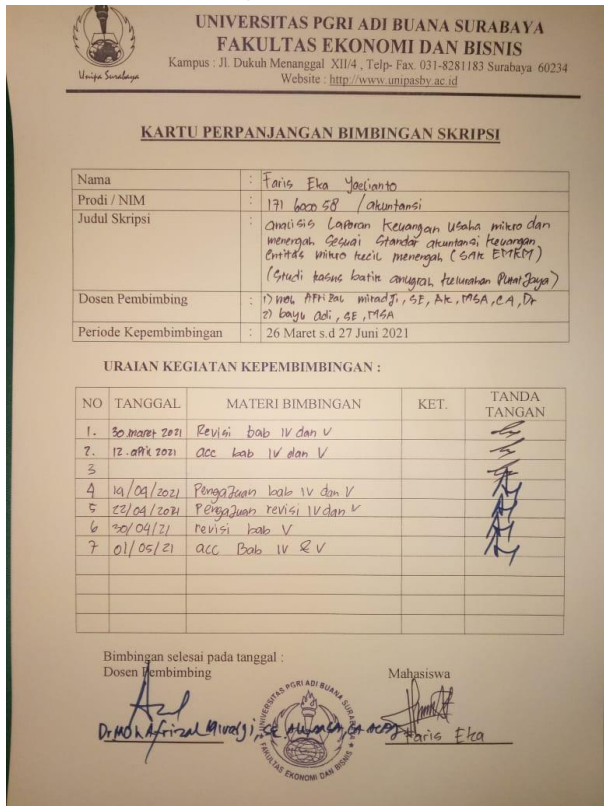 UNIVERSITAS PGRI ADI BUANA SURABAYA
FAKULTAS EKONOMI DAN BISNIS
Kampus : Jl. Dukuh Menanggal XII/4 , Telp- Fax. 031-8281183 Surabaya 60234
Website : http://www.unipasby.ac.id
Unipa Surabaya
KARTU PERPANJANGAN BIMBINGAN SKRIPSI
Nama : Faris Eka Yoelianto
Prodi / NIM : 171 600058 / akuntansi
Judul Skripsi : analisis Laporan Keuangan usaha mikro dan
menengah Sesuai Standar akuntansi keuangan
Entitas mikro kecil menengah (SAK EMKM)
(Studi kasus batik anugrah kelurahan Putat Jaya)
Dosen Pembimbing : 1) moh AFrizal miradji, SE, Ak, MSA, CA, Dr
2) bayu adi, SE, MSA
Periode Kepembimbingan : 26 Maret s.d 27 Juni 2021
URAIAN KEGIATAN KEPEMBIMBINGAN :
NO TANGGAL MATERI BIMBINGAN KET. TANDA TANGAN
1. 30 maret 2021 Revisi bab IV dan V
2. 12. april 2021 acc bab IV dan V
3
4 19/04/2021 Pengajuan bab IV dan V
5 22/04/2021 Pengajuan revisi IV dan V
6 30/04/21 revisi bab V
7 01/05/21 acc Bab IV & V
Bimbingan selesai pada tanggal :
Dosen Pembimbing Mahasiswa
Dr Moh Afrizal Miradji, SE
Faris Eka
UNIVERSITAS PGRI ADI BUANA SURABAYA
FAKULTAS EKONOMI DAN BISNIS